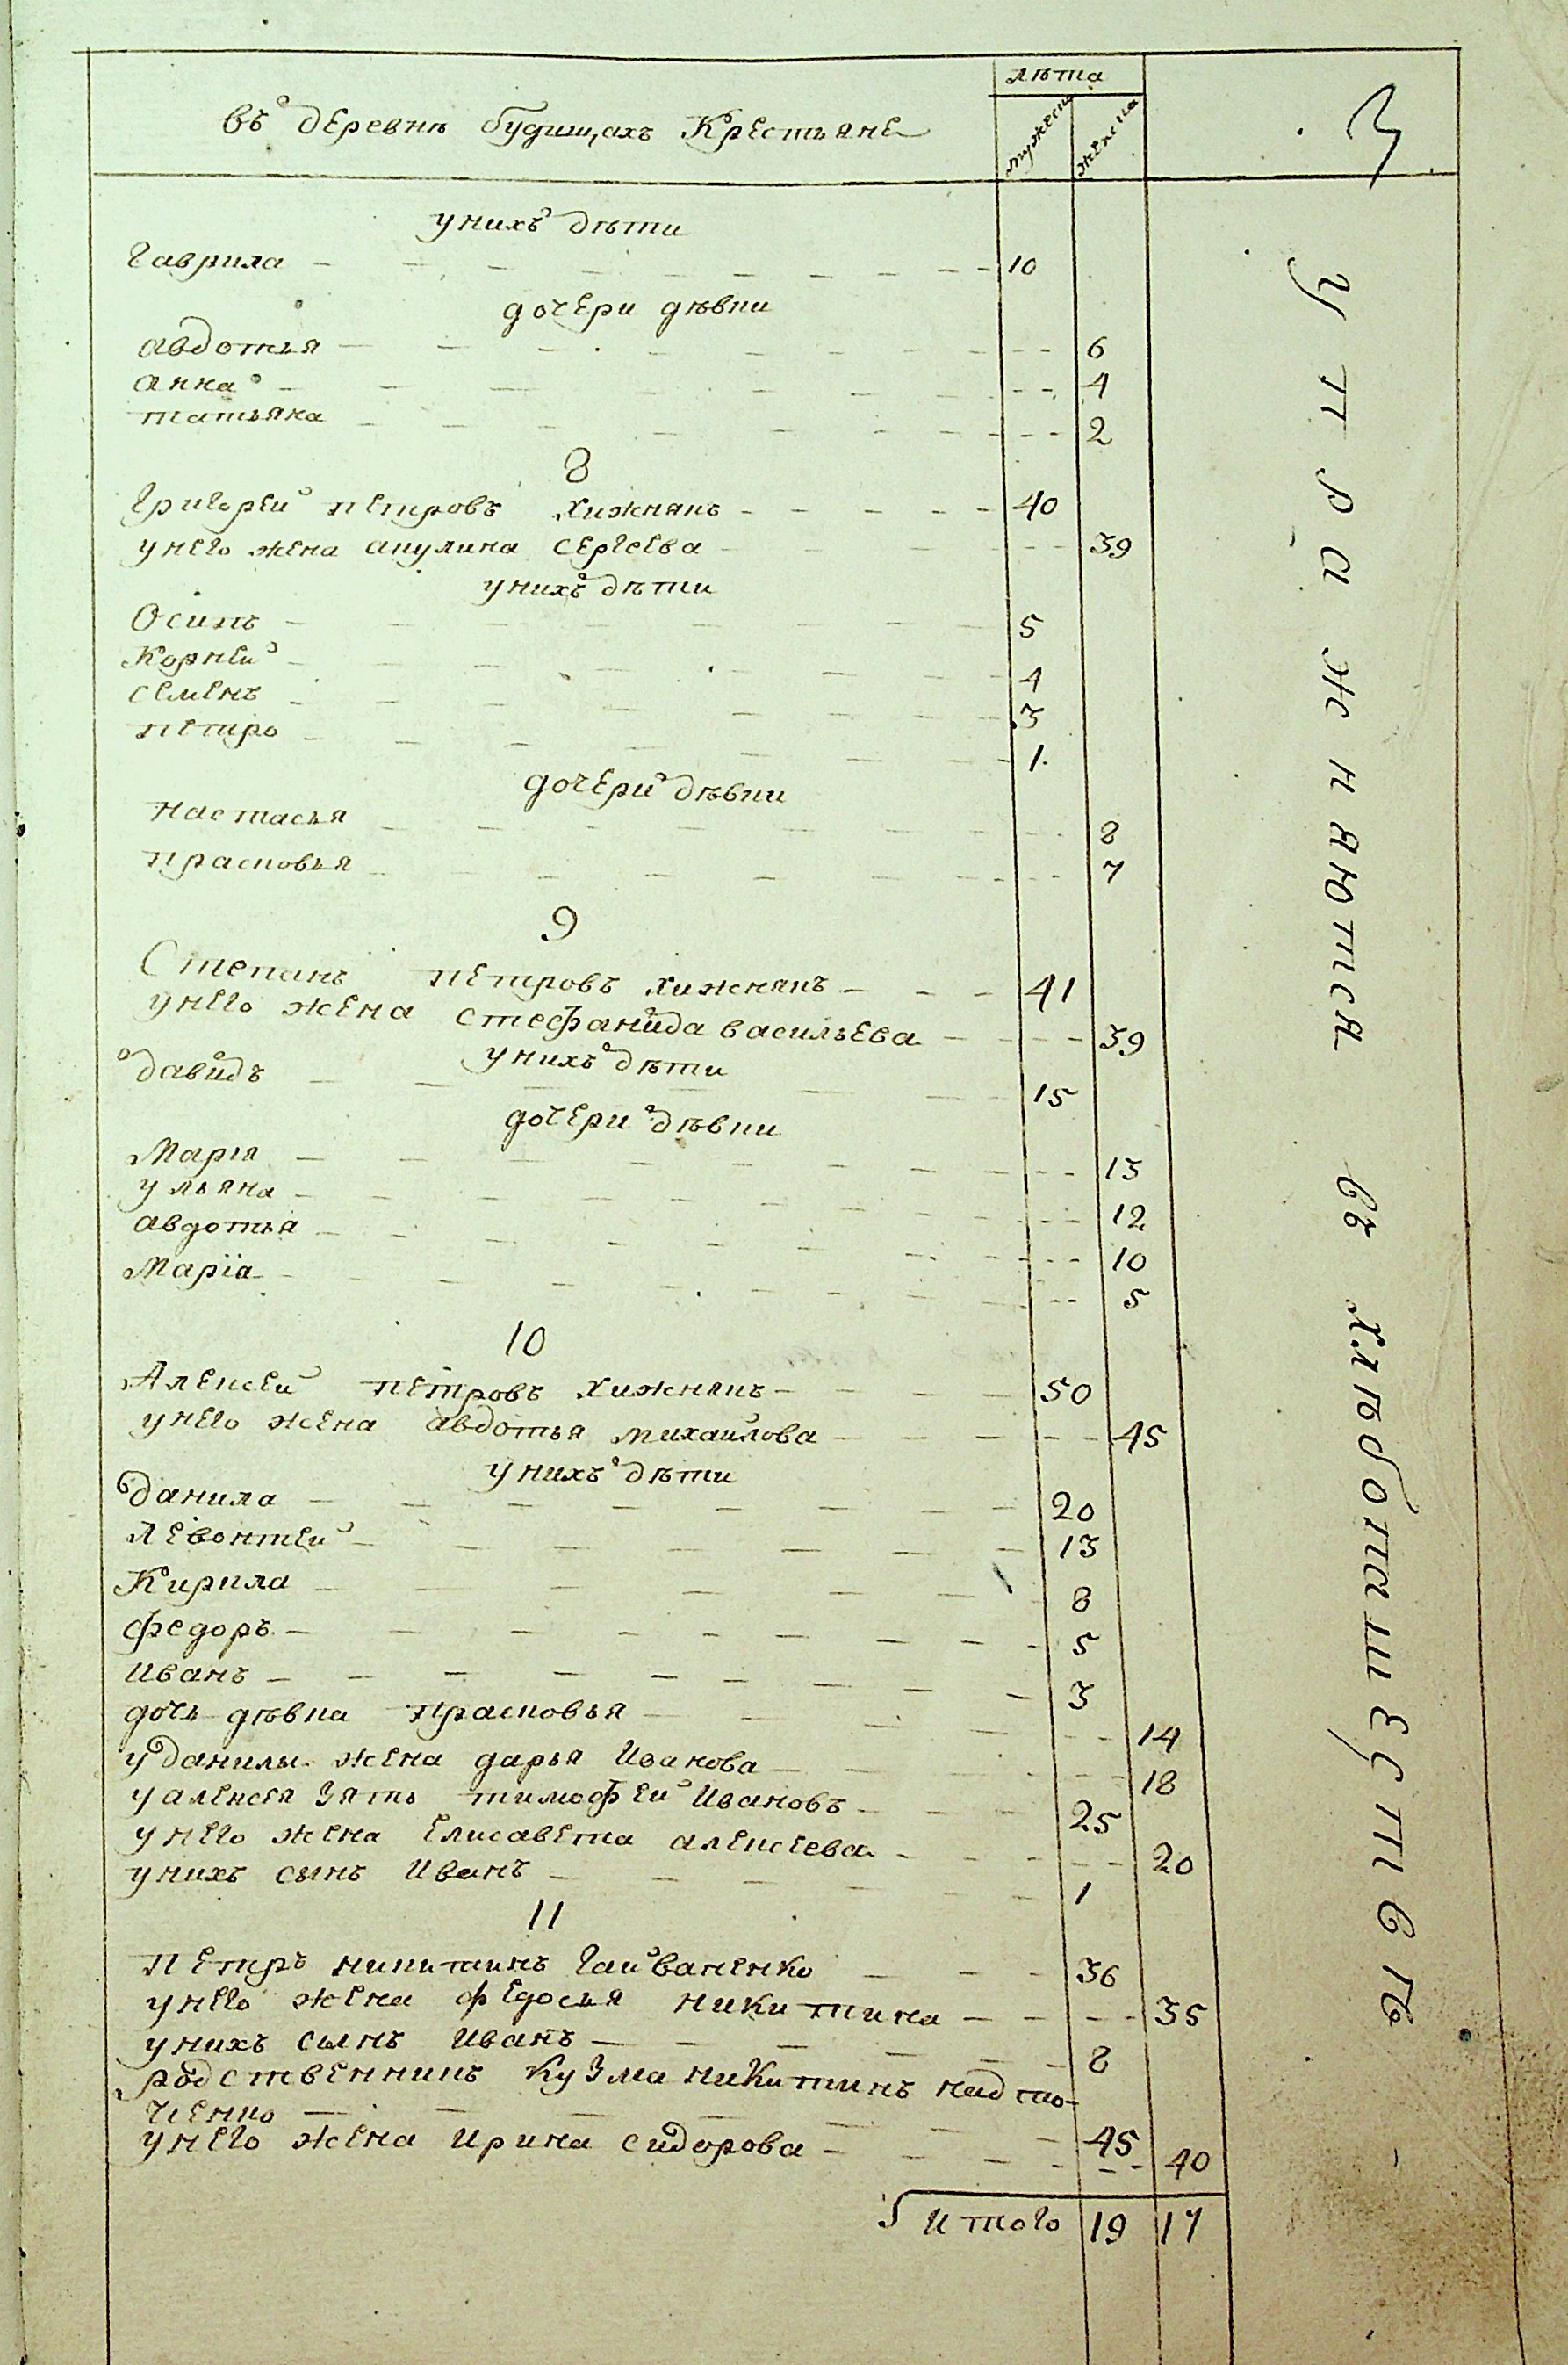 въ деревнѣ будищахъ Крестьяне
лѣта
мужеска
женска
унихъ дѣти
Гаврила 10
дочери дѣвки
авдотья 6
анна 4
татьяна 2
8
Григореи петровъ хижнякъ 40
унего жена акулина сергеева 39
унихъ дѣти
Осипъ 5
Корнеи 4
семенъ 3
петро 1
дочери дѣвки
настасья 8
прасковья 7
9
Степанъ петровъ хижнякъ 41
унего жена стефанида васильева 39
унихъ дѣти
давидъ 15
дочери дѣвки
Марія 13
ульяна 12
авдотья 10
Маріа 5
10
Алексеи петровъ хижнякъ 50
унего жена авдотья михаилова 45
унихъ дѣти
данила 20
левонтеи 13
Кирила 8
федоръ 5
Иванъ 3
дочь дѣвка прасковья 14
уданилы жена дарья Иванова 18
уалексея зять тимофеи Ивановъ 25
унего жена Елисавета алексеева 20
унихъ сынъ Иванъ 1
11
петръ никитинъ Гаиваненко 36
унего жена федосья никитина 35
унихъ сынъ Иванъ 8
родственникъ кузма никитинъ надто-
ченко 45
унего жена Ирина сидорова 40
Итого 19 17
Упражняются въ хлѣбопашествѣ